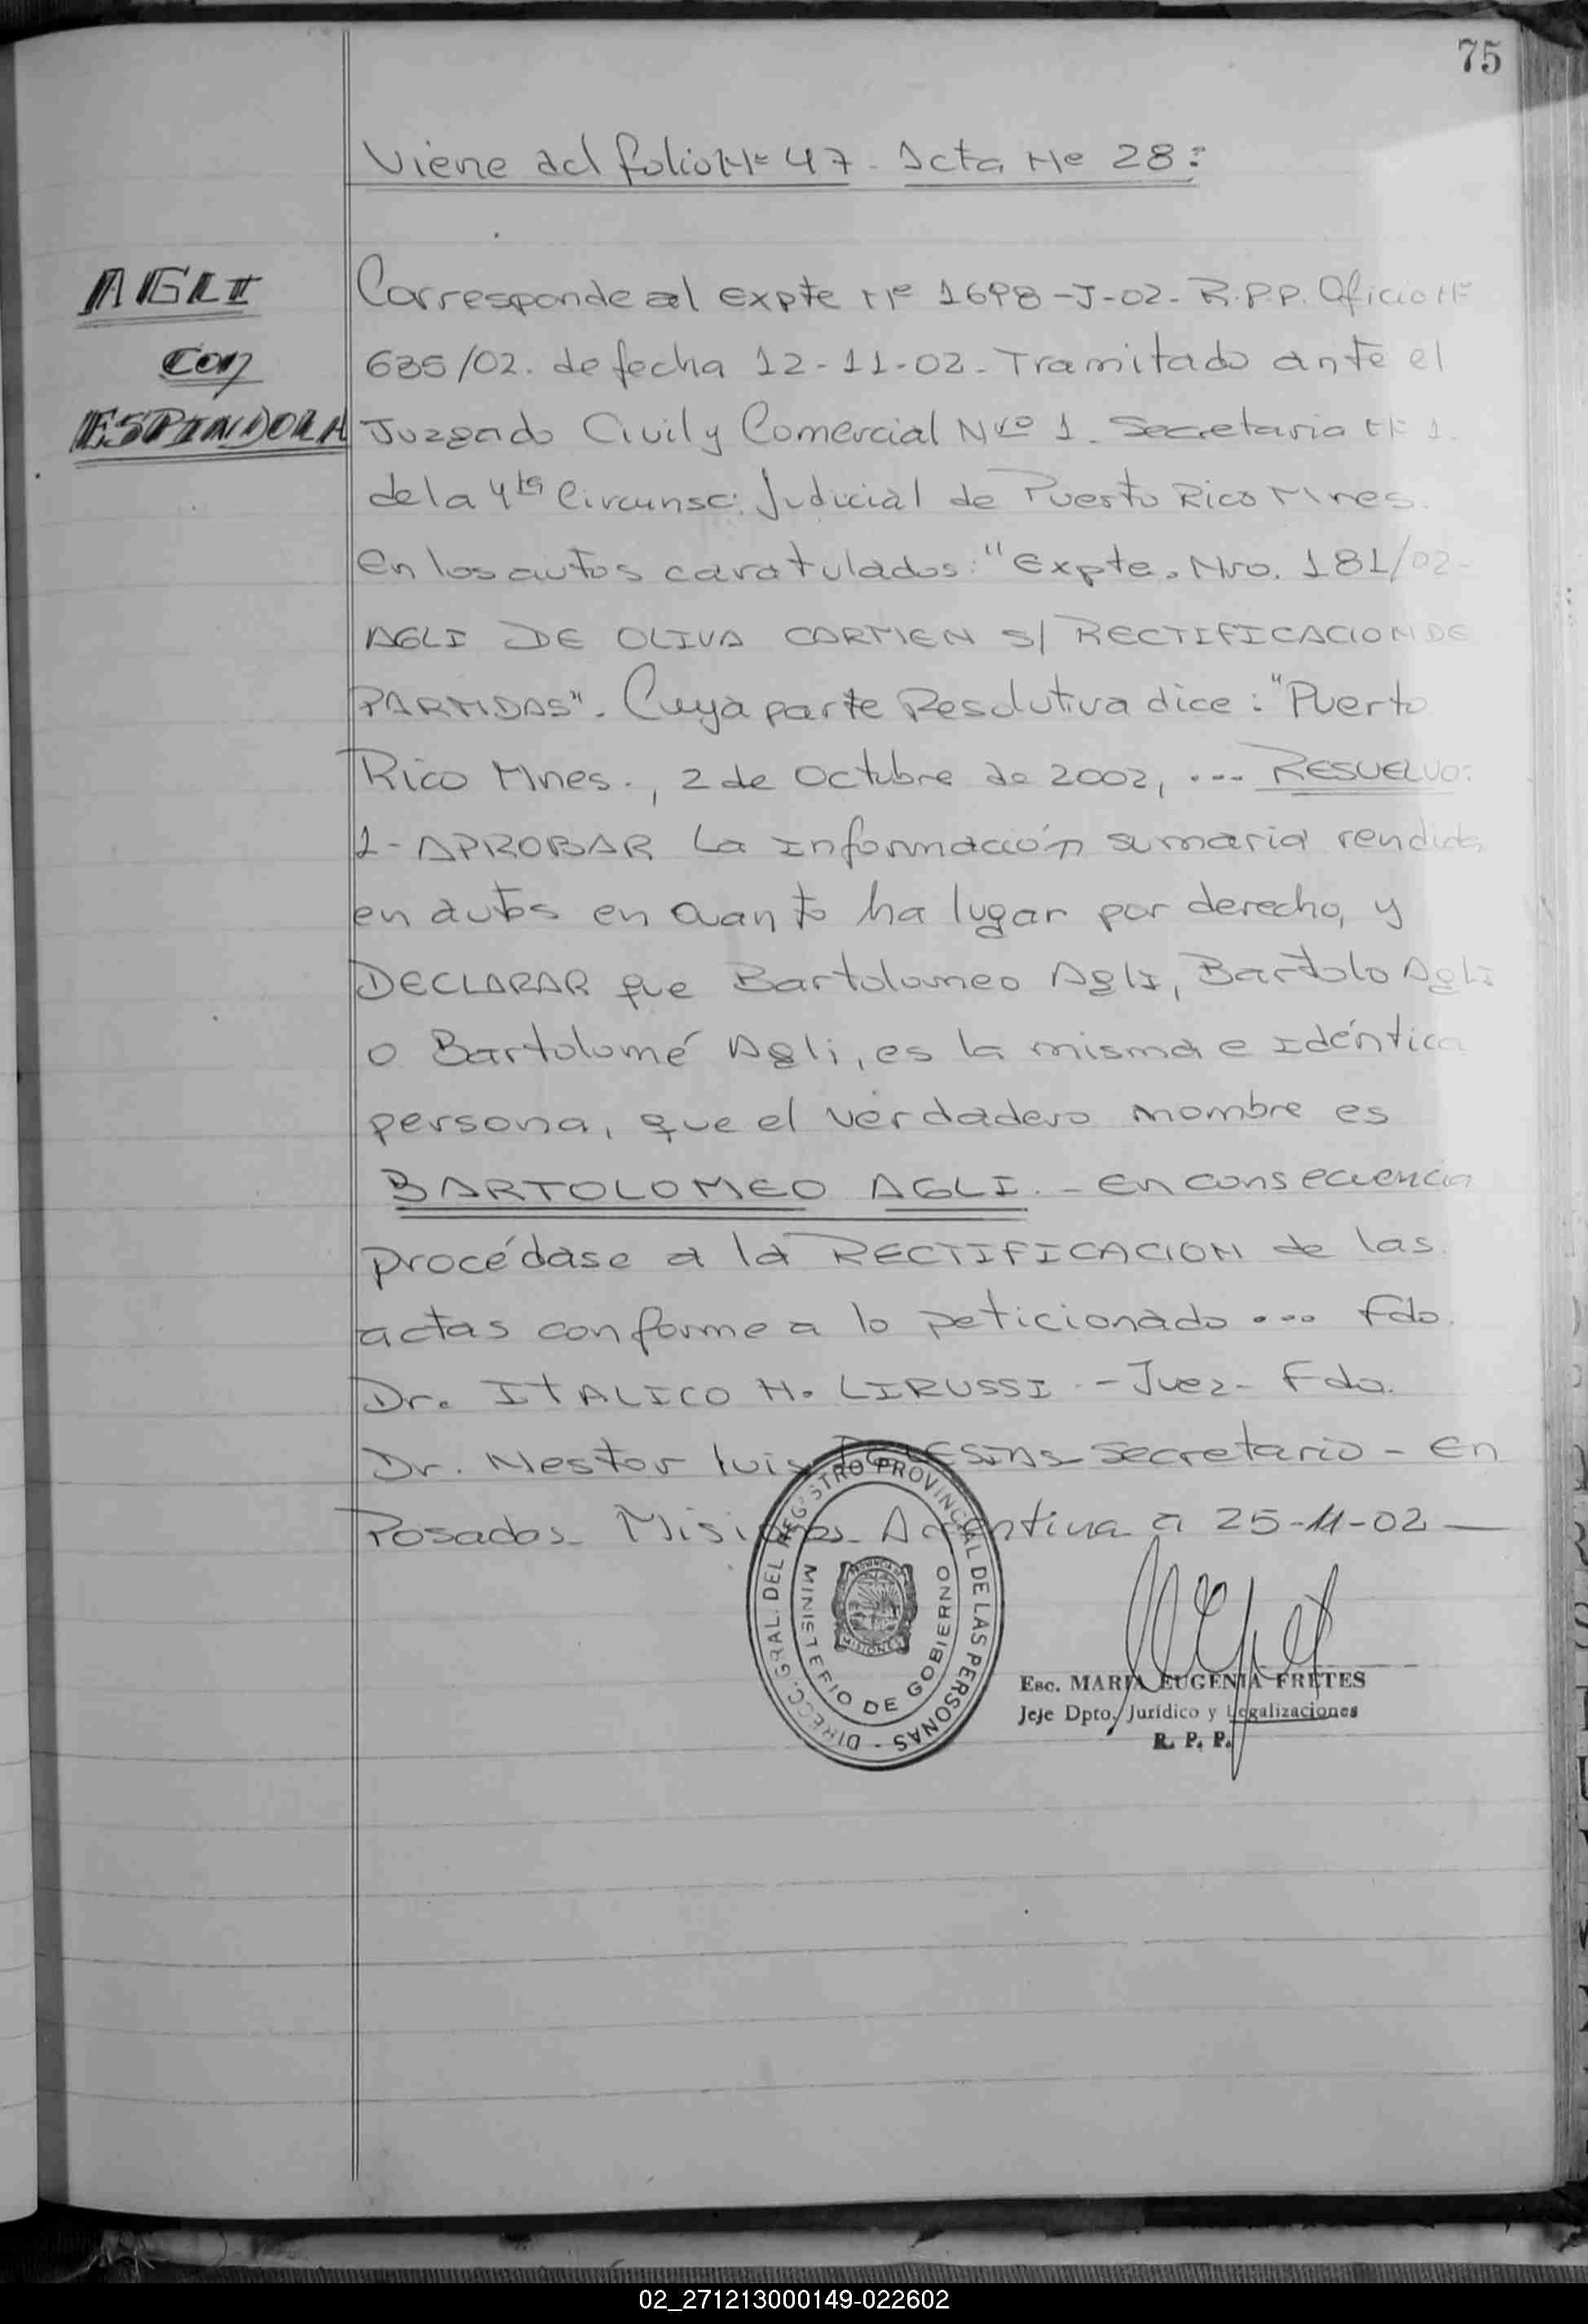 75
Viene del folio Nº 47 - Acta Nº 28:
AGLI
con
ESPINDOLA
Corresponde al expte Nº 1698-J-02- R.P.P. Oficio Nº
635/02. de fecha 12-11-02- Tramitado ante el
Juzgado Civil y Comercial Nro 1. Secretaria Nº 1.
de la 4ta Circunsc. Judicial de Puerto Rico Mnes.
en los autos caratulados: "Expte. Nro. 181/02-
AGLI DE OLIVA CARMEN S/ RECTIFICACION DE
PARTIDAS". Cuya parte Resolutiva dice: "Puerto
Rico Mnes., 2 de Octubre de 2002, ... RESUELVO:
1- APROBAR la información sumaria rendida
en autos en cuanto ha lugar por derecho, y
DECLARAR que Bartolomeo Agli, Bartolo Agli
o Bartolomé Agli, es la misma e idéntica
persona, que el verdadero nombre es
BARTOLOMEO AGLI. - en consecuencia
procédase a la RECTIFICACION de las
actas conforme a lo peticionado ... Fdo.
Dr. ITALICO H. LIRUSSI - Juez - Fdo.
Dr. Nestor Luis Secretario - En
Posadas - Misiones - Argentina a 25-11-02
DIRECC. GRAL. DEL REGISTRO PROVINCIAL DE LAS PERSONAS -
MINISTERIO DE GOBIERNO
PROVINCIA DE
MISIONES
Esc. MARIA EUGENIA FRETES
Jefe Dpto. Jurídico y Legalizaciones
R. P. P.
02_271213000149-022602